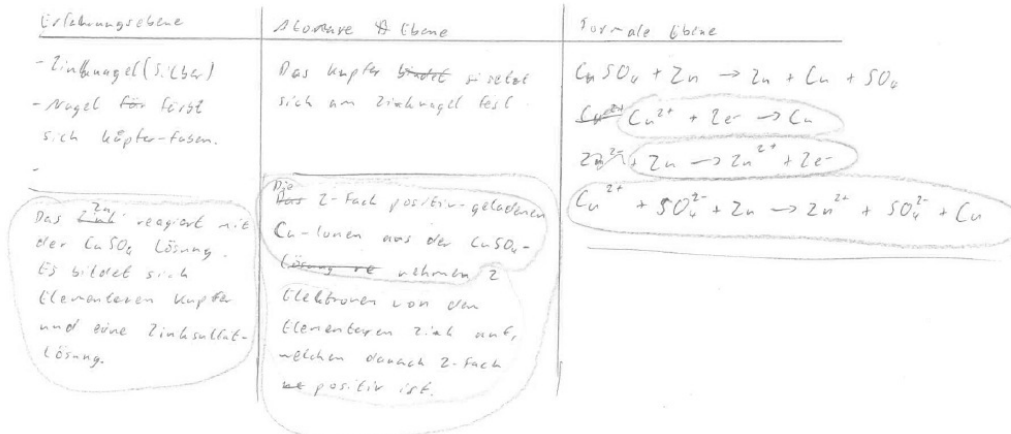 Erfahrungsebene
- Zinknagel (Silber)
- Nagel för färbt
sich kupfer-faben.
-
Das Zink Zn reagiert mit
der CuSO₄ Lösung.
Es bildet sich
Elementeren Kupfer
und eine Zinksulfat-
Lösung.
Atomare Ebene
Das Kupfer bindet si setzt
sich am Zinknagel fest.
Das Die 2-fach positiv-geladenen
Cu-Ionen aus der CuSO₄-
Lösung nehmen 2
Elektronen von den
Elementeren Zink auf,
welchen danach 2-fach
positiv ist.
Formale Ebene
CuSO₄ + Zn → Zn + Cu + SO₄
Cu²⁺ Cu²⁺ + 2e⁻ → Cu
Zn → Zn²⁺ + 2e⁻
Cu²⁺ + SO₄²⁻ + Zn → Zn²⁺ + SO₄²⁻ + Cu